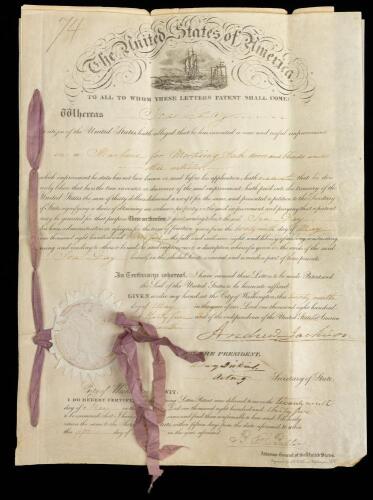 74
The United States of America
TO ALL TO WHOM THESE LETTERS PATENT SHALL COME:
Whereas
citizen of the United States, hath alleged that he has invented a new and useful improvement
in a Machine for Morticing
which improvement he states has not been known or used before his application, hath
declare that he is the true inventor or discoverer of the said improvement, hath paid into the treasury of the
United States, the sum of thirty dollars, delivered a receipt for the same, and presented a petition to the Secretary
of State, signifying a desire of obtaining an exclusive property in the said improvement, and praying that a patent
may be granted for that purpose: These are therefore to grant, according to law, to the said
his heirs, administrators or assigns, for the term of fourteen years, from the twenty ninth day of
one thousand eight hundred and the full and exclusive right and liberty of making, constructing,
using, and vending to others to be used, the said improvement, a description whereof is given in the words of the said
Day himself, in the schedule hereto annexed, and is made a part of these presents.
In Testimony whereof, I have caused these Letters to be made Patent, and
the Seal of the United States to be hereunto affixed.
GIVEN under my hand, at the City of Washington, this twenty ninth
day of in the year of our Lord, one thousand eight hundred
thirty five and of the independence of the United States of America
Andrew Jackson
BY THE PRESIDENT,
acting Secretary of State.
City of
I DO HEREBY CERTIFY, Letters Patent, were delivered to me on the twenty ninth
day of in the year of our Lord, one thousand eight hundred and thirty five
to be examined; that I have examined the same, and find them conformable to law; and I do hereby
return the same to the Secretary of State, within fifteen days from the date aforesaid, to wit:
this day of in the year aforesaid.
Attorney General of the United States.